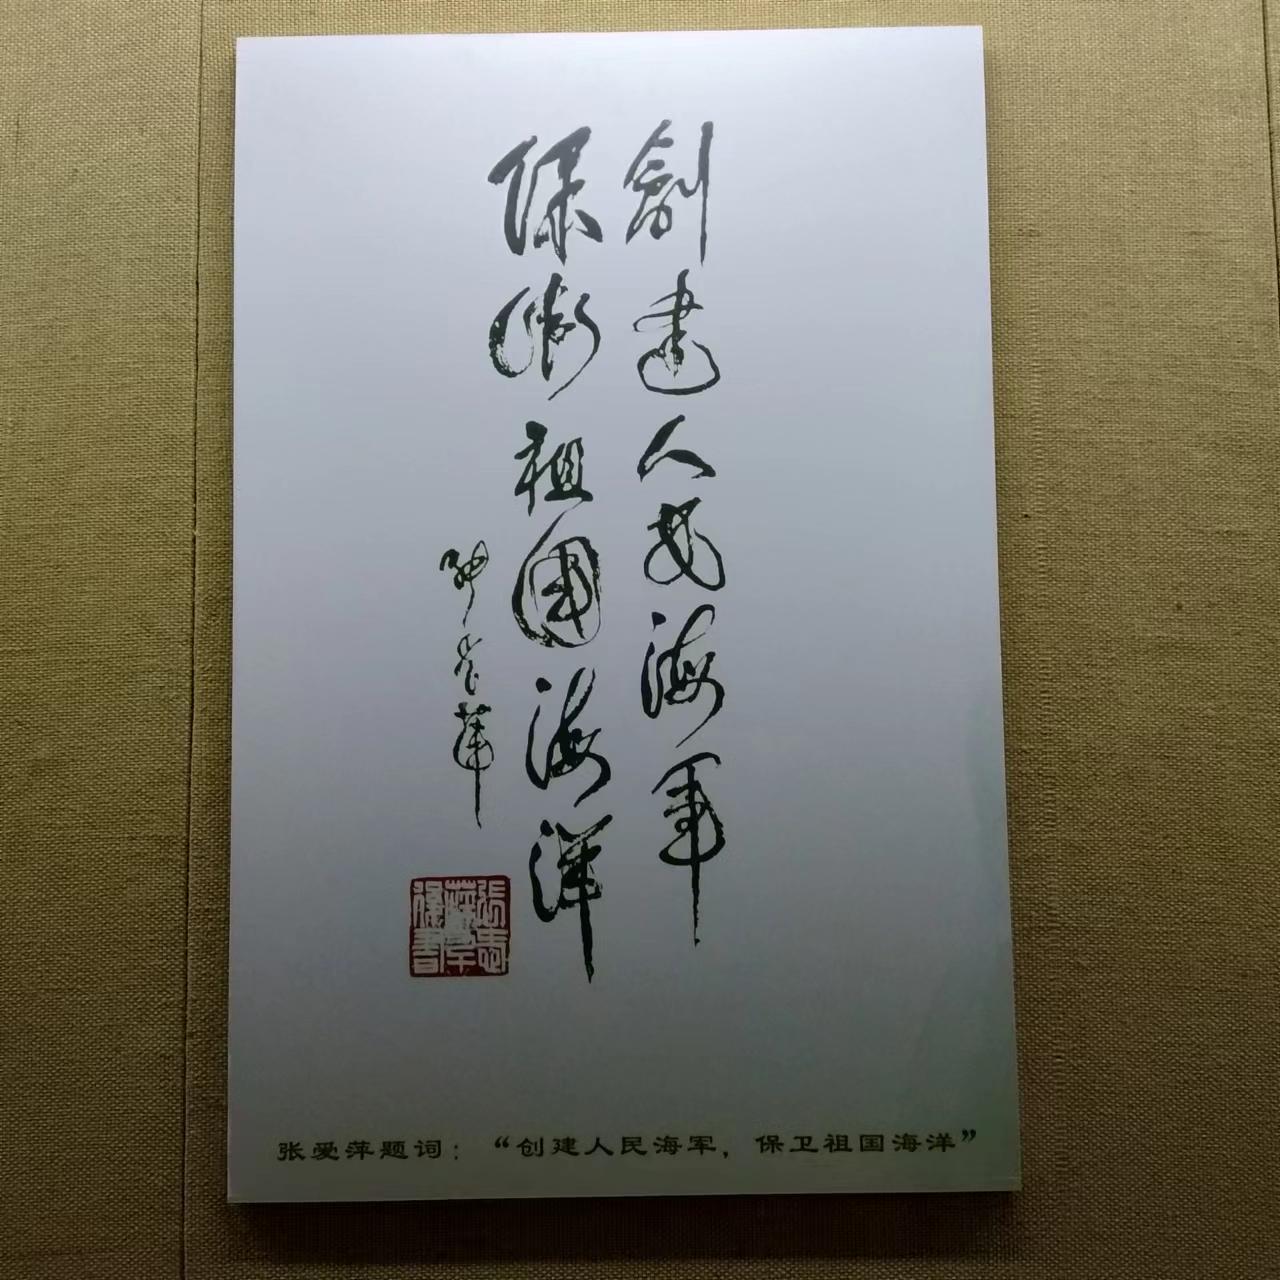 創建人民海軍
保衛祖國海洋
張愛萍
张爱萍题词：“创建人民海军，保卫祖国海洋”